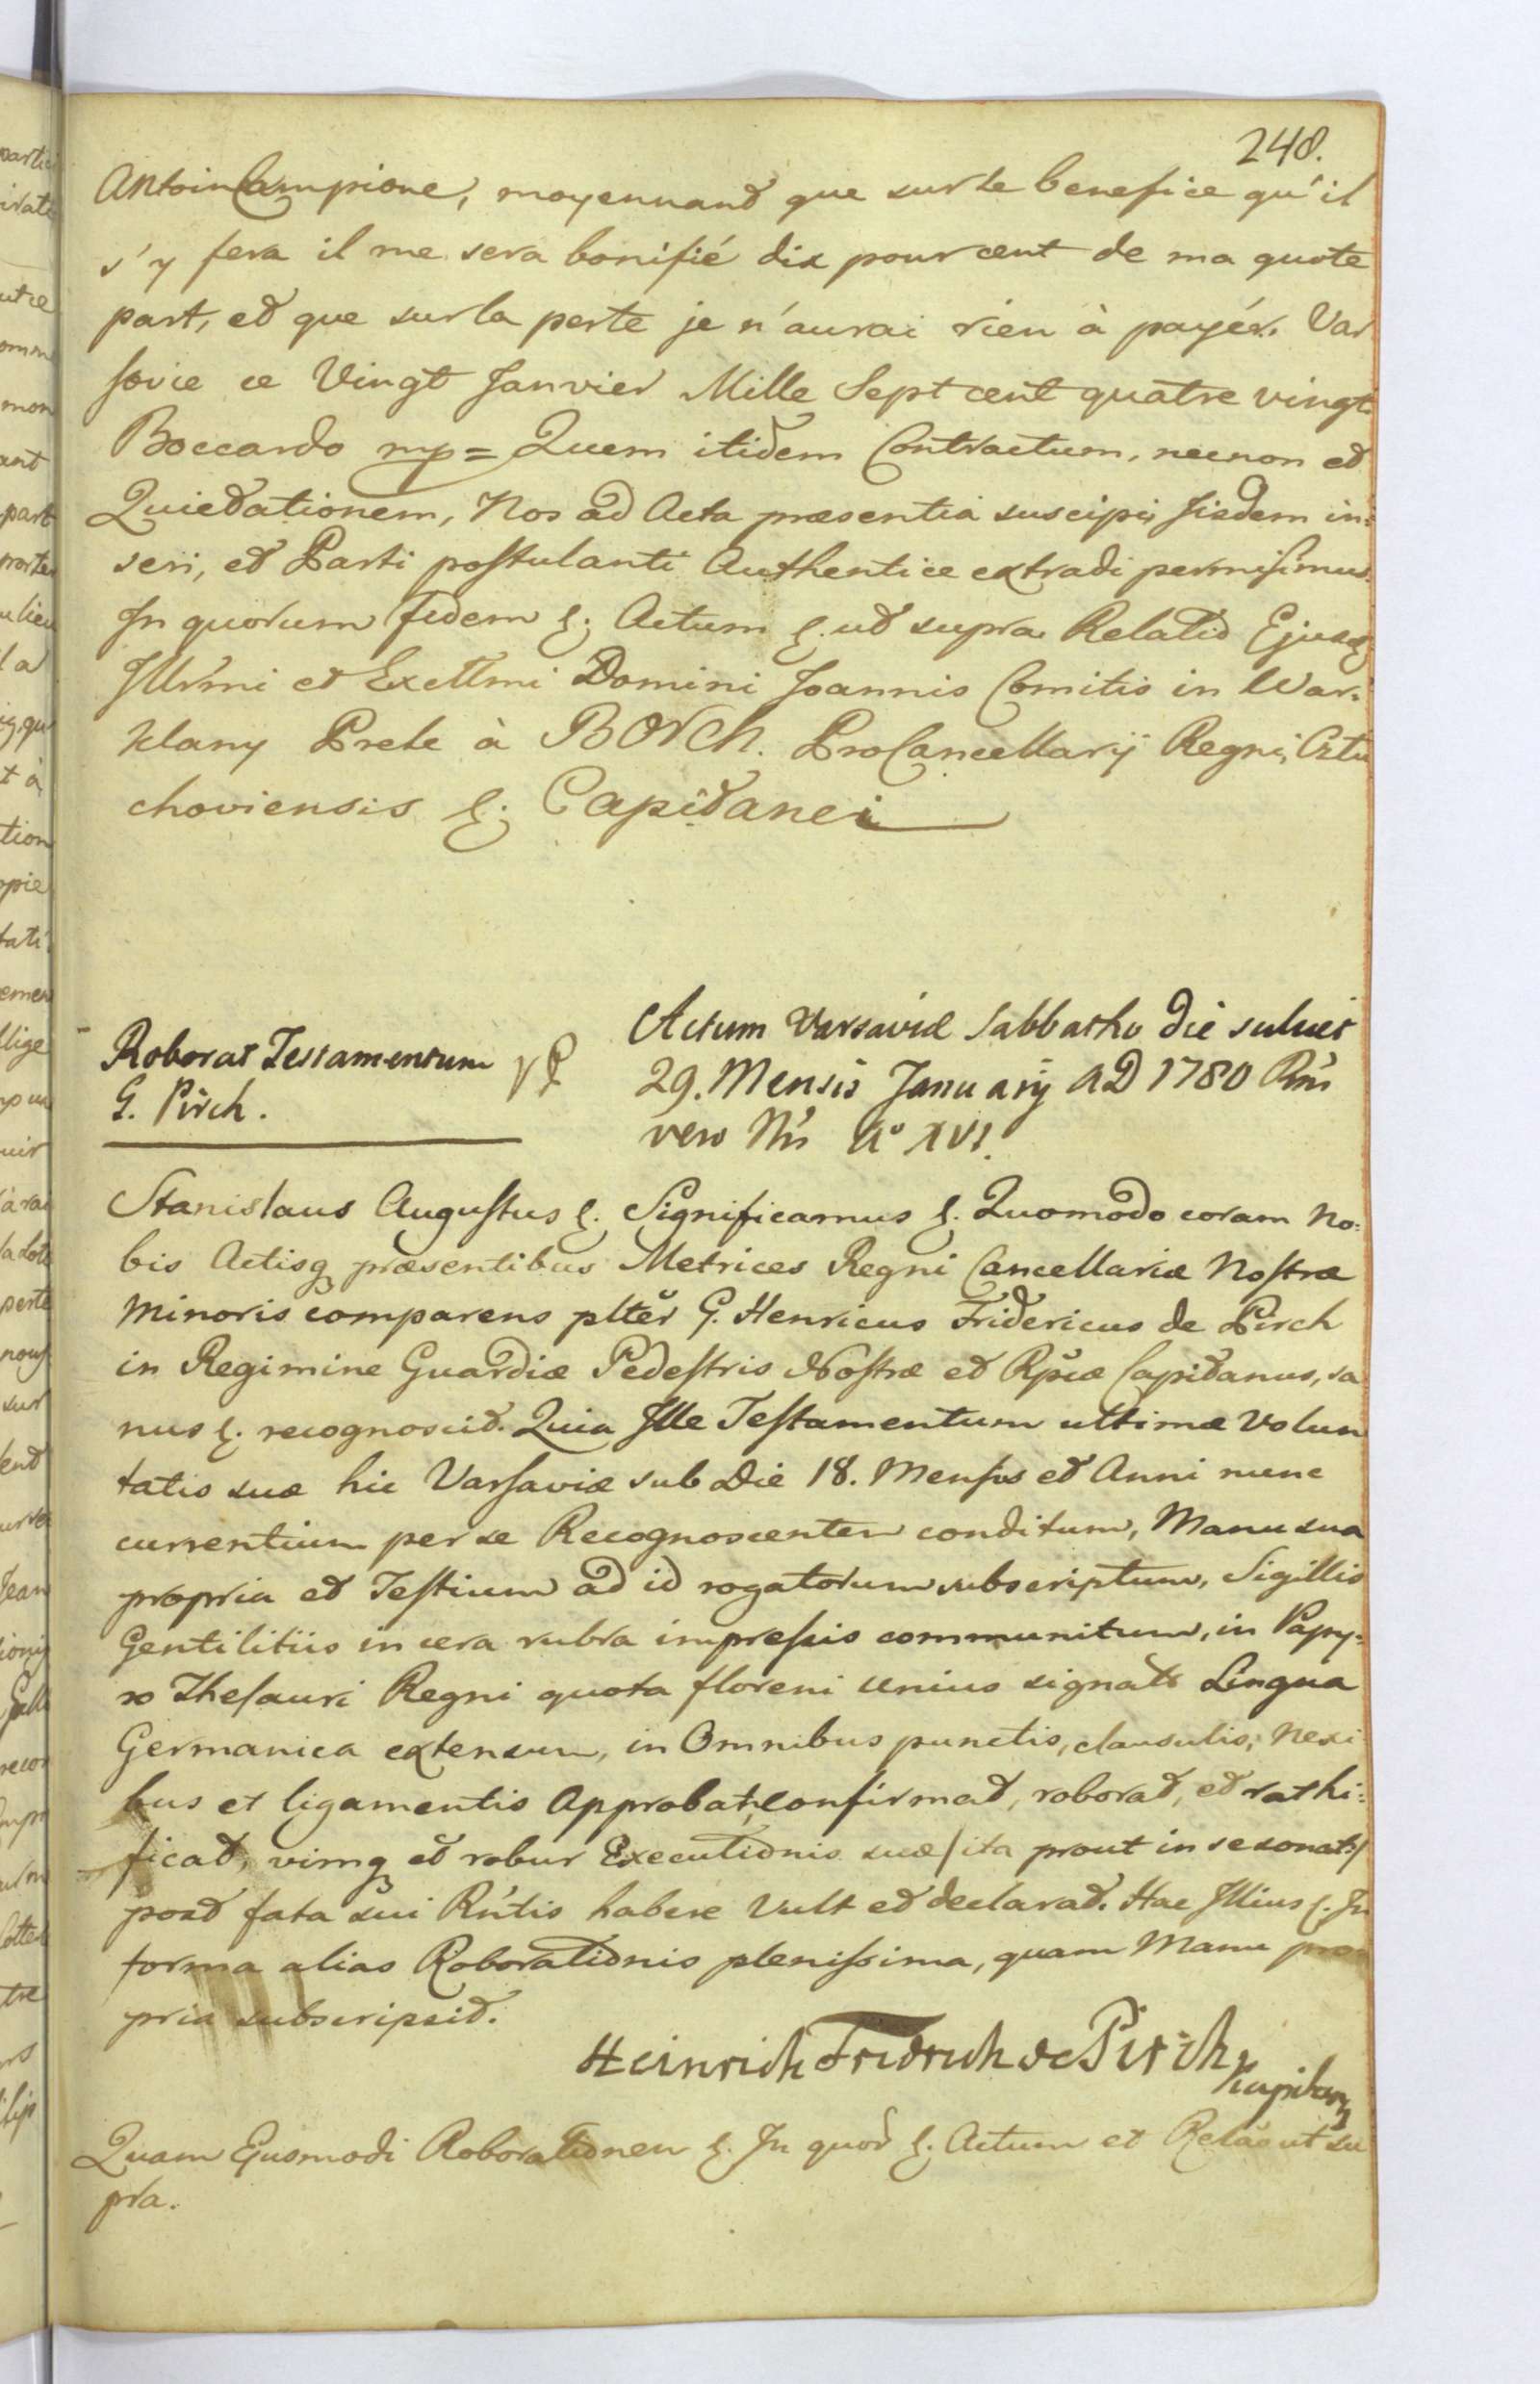 248.
Antoin Campione, moyennant que sur le benefice qu'il
s'y fera il me sera bonifié dix pour cent de ma quote
part, et que sur la perte je n'aurai rien à payér. Var
sovie ce Vingt Janvier Mille Sept cent quatre vingt
Boccardo mp = Quem itidem Contractum, necnon et
Quietationem, Nos ad Acta præsentia suscipi, Jisdem in:
seri, et Parti postulanti Authentice extradi permisimus.
In quorum fidem &. Actum &. ut supra Relatio Ejusdq
Illrmi et Excllmi Domini Joannis Comitis in War:
klany Prele à BORCh. ProCancellarij Regni, Oztu
choviensis &. Capitanei
Roborat Testamentum
G. Pirch.
Actum Varsaviæ Sabbatho die
29. Mensis January AD 1780 Rni
vero Nri Ao XVI.
Stanislaus Augustus &. Significamus &. Quomodo coram No:
bis Actisq præsentibus Metrices Regni Cancellariæ Nostræ
Minoris comparens plter G. Henricus Fridericus de Pirch
in Regimine Guardiæ Pedestris Nostræ et Rpcæ Capitanus, sa
nus &. recognoscit. Quia Ille Testamentum ultimæ Volun
tatis suæ hic Varsaviæ sub Die 18. Mensis et Anni nunc
currentium per se Recognoscentem conditum, Manu sua
propria et Testium ad id rogatorum subscriptum, Sigillis
Gentilitiis in cera rubra impressis communitum, in Papy:
ro Thesauri Regni quota floreni unius signato Lingua
Germanica extensum, in Omnibus punctis, clausulis, Nexi
bus et ligamentis Approbat, confirmat, roborat, et rathi:
ficat, vimq et robur Executionis suæ / ita prout in se sonat /
post fata sui Rntis habere Vult et declarat. Hac Illius &. In
forma alias Roborationis plenissima, quam Manu pro
pria subscripsit.
Heinrich Fridrich de Pirch
Kapitan
Quam Ejusmodi Roborationem &. In quor &. Actum et Relao ut su
pra.